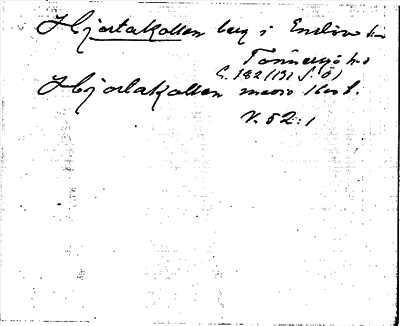 Hjortakollen berg i Enslöv sn
Tönnersjö hd
G. 182 (191 f. ö)
Hjortakollen
V. 52:1